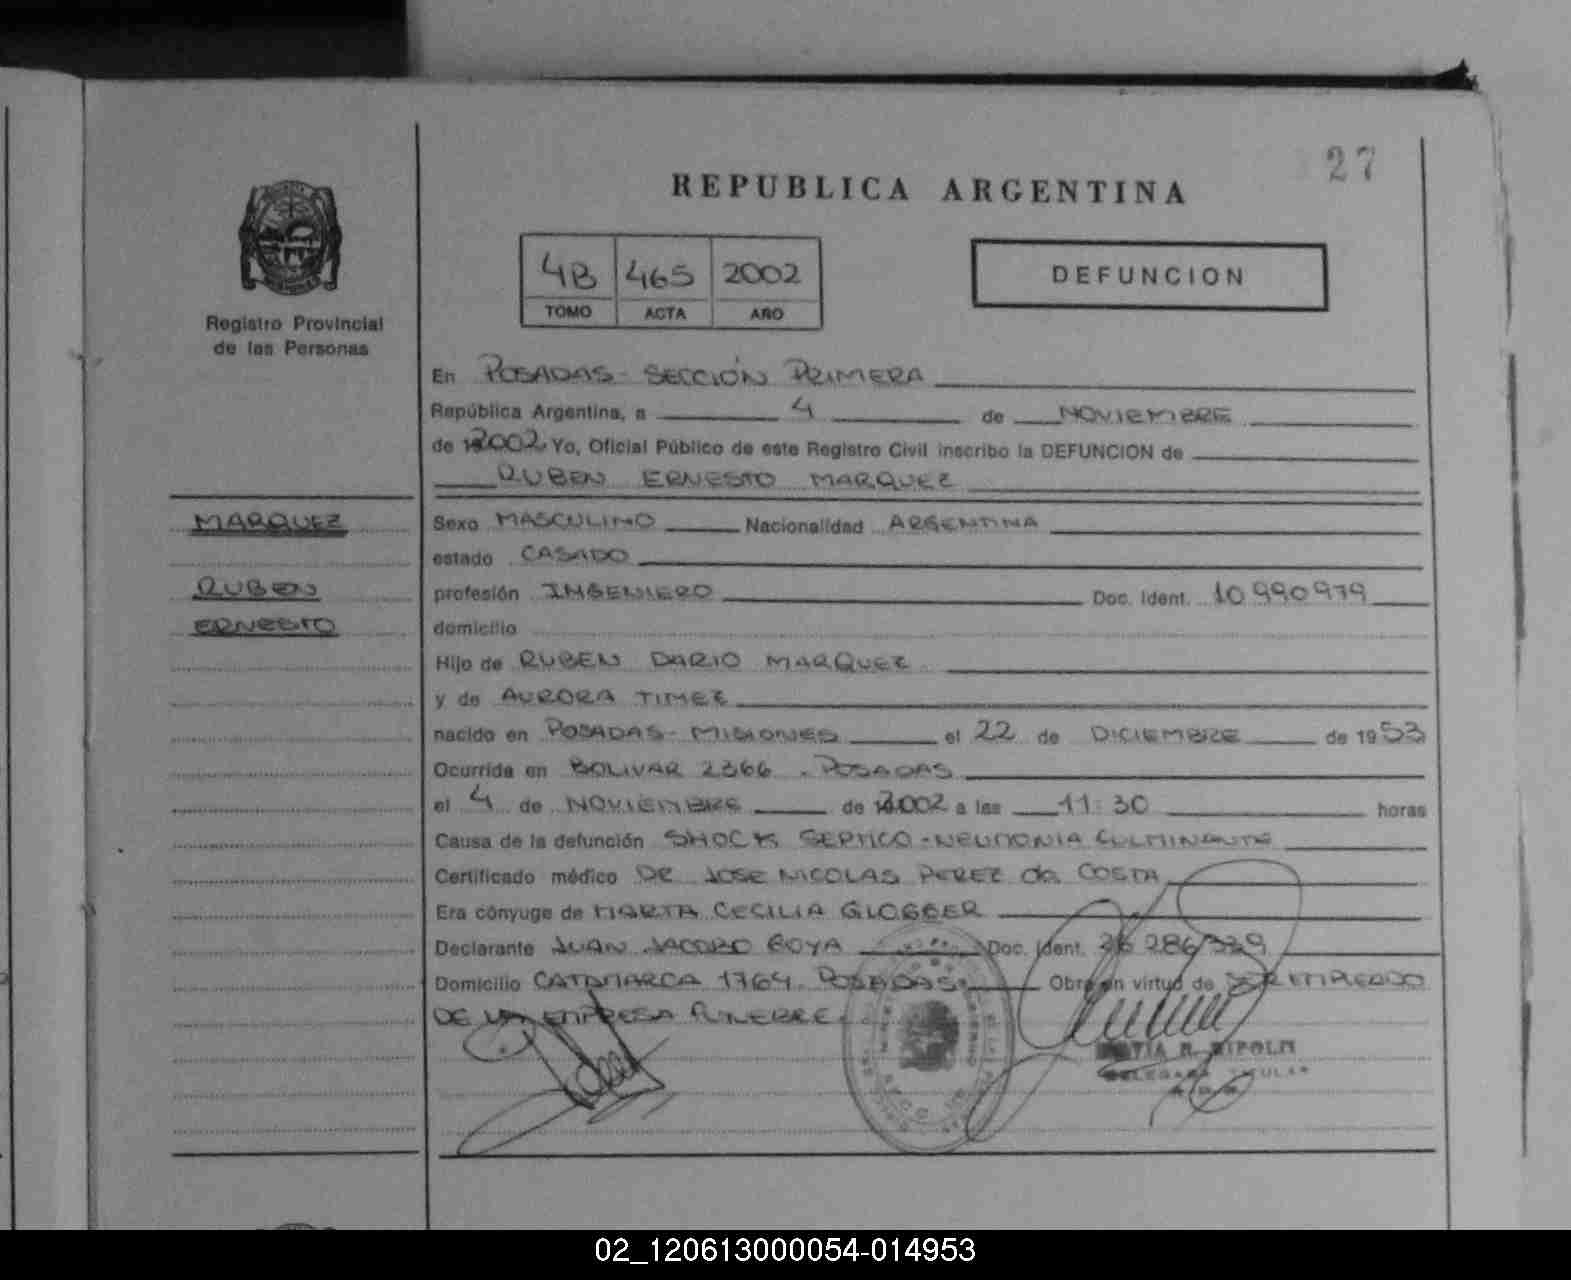 27
REPUBLICA ARGENTINA
4B 465 2002
TOMO ACTA AÑO
DEFUNCION
Registro Provincial
de las Personas
En POSADAS - SECCIÓN PRIMERA
República Argentina, a 4 de NOVIEMBRE
de 2002 Yo, Oficial Público de este Registro Civil inscribo la DEFUNCION de
RUBEN ERNESTO MARQUEZ
MARQUEZ
RUBEN
ERNESTO
Sexo MASCULINO Nacionalidad ARGENTINA
estado CASADO
profesión INGENIERO Doc. Ident. 10 990979
domicilio
Hijo de RUBEN DARIO MARQUEZ
y de AURORA TIMEZ
nacido en POSADAS - MISIONES el 22 de DICIEMBRE de 1953
Ocurrida en BOLIVAR 2366 . POSADAS
el 4 de NOVIEMBRE de 2002 a las 11:30 horas
Causa de la defunción SHOCK SEPTICO - NEUMONIA CULMINANTE
Certificado médico DR JOSE NICOLAS PEREZ da COSTA
Era cónyuge de MARTA CECILIA GLOBBER
Declarante JUAN JACOBO GOYA Doc. Ident. 26 286339
Domicilio CATAMARCA 1764 POSADAS Obra en virtud de SER EMPLEADO
DE LA EMPRESA FUNEBRE
02_120613000054-014953